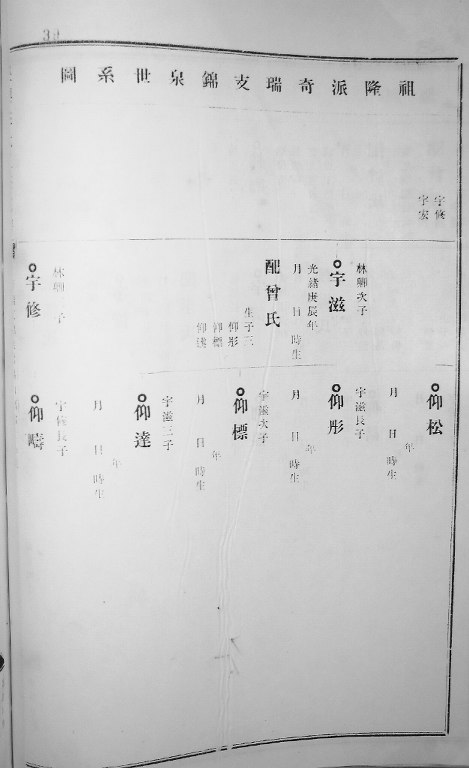 祖隆派奇瑞支錦泉世系圖
宇修
宇宏
林聊次子
宇滋
光緒庚辰年
月 日 時生
配曾氏
生子三
仰彤
仰標
仰達
林聊 子
宇修
仰松
年
月 日 時生
宇滋長子
仰彤
年
月 日 時生
宇滋次子
仰標
年
月 日 時生
宇滋三子
仰達
年
月 日 時生
宇修長子
仰疇